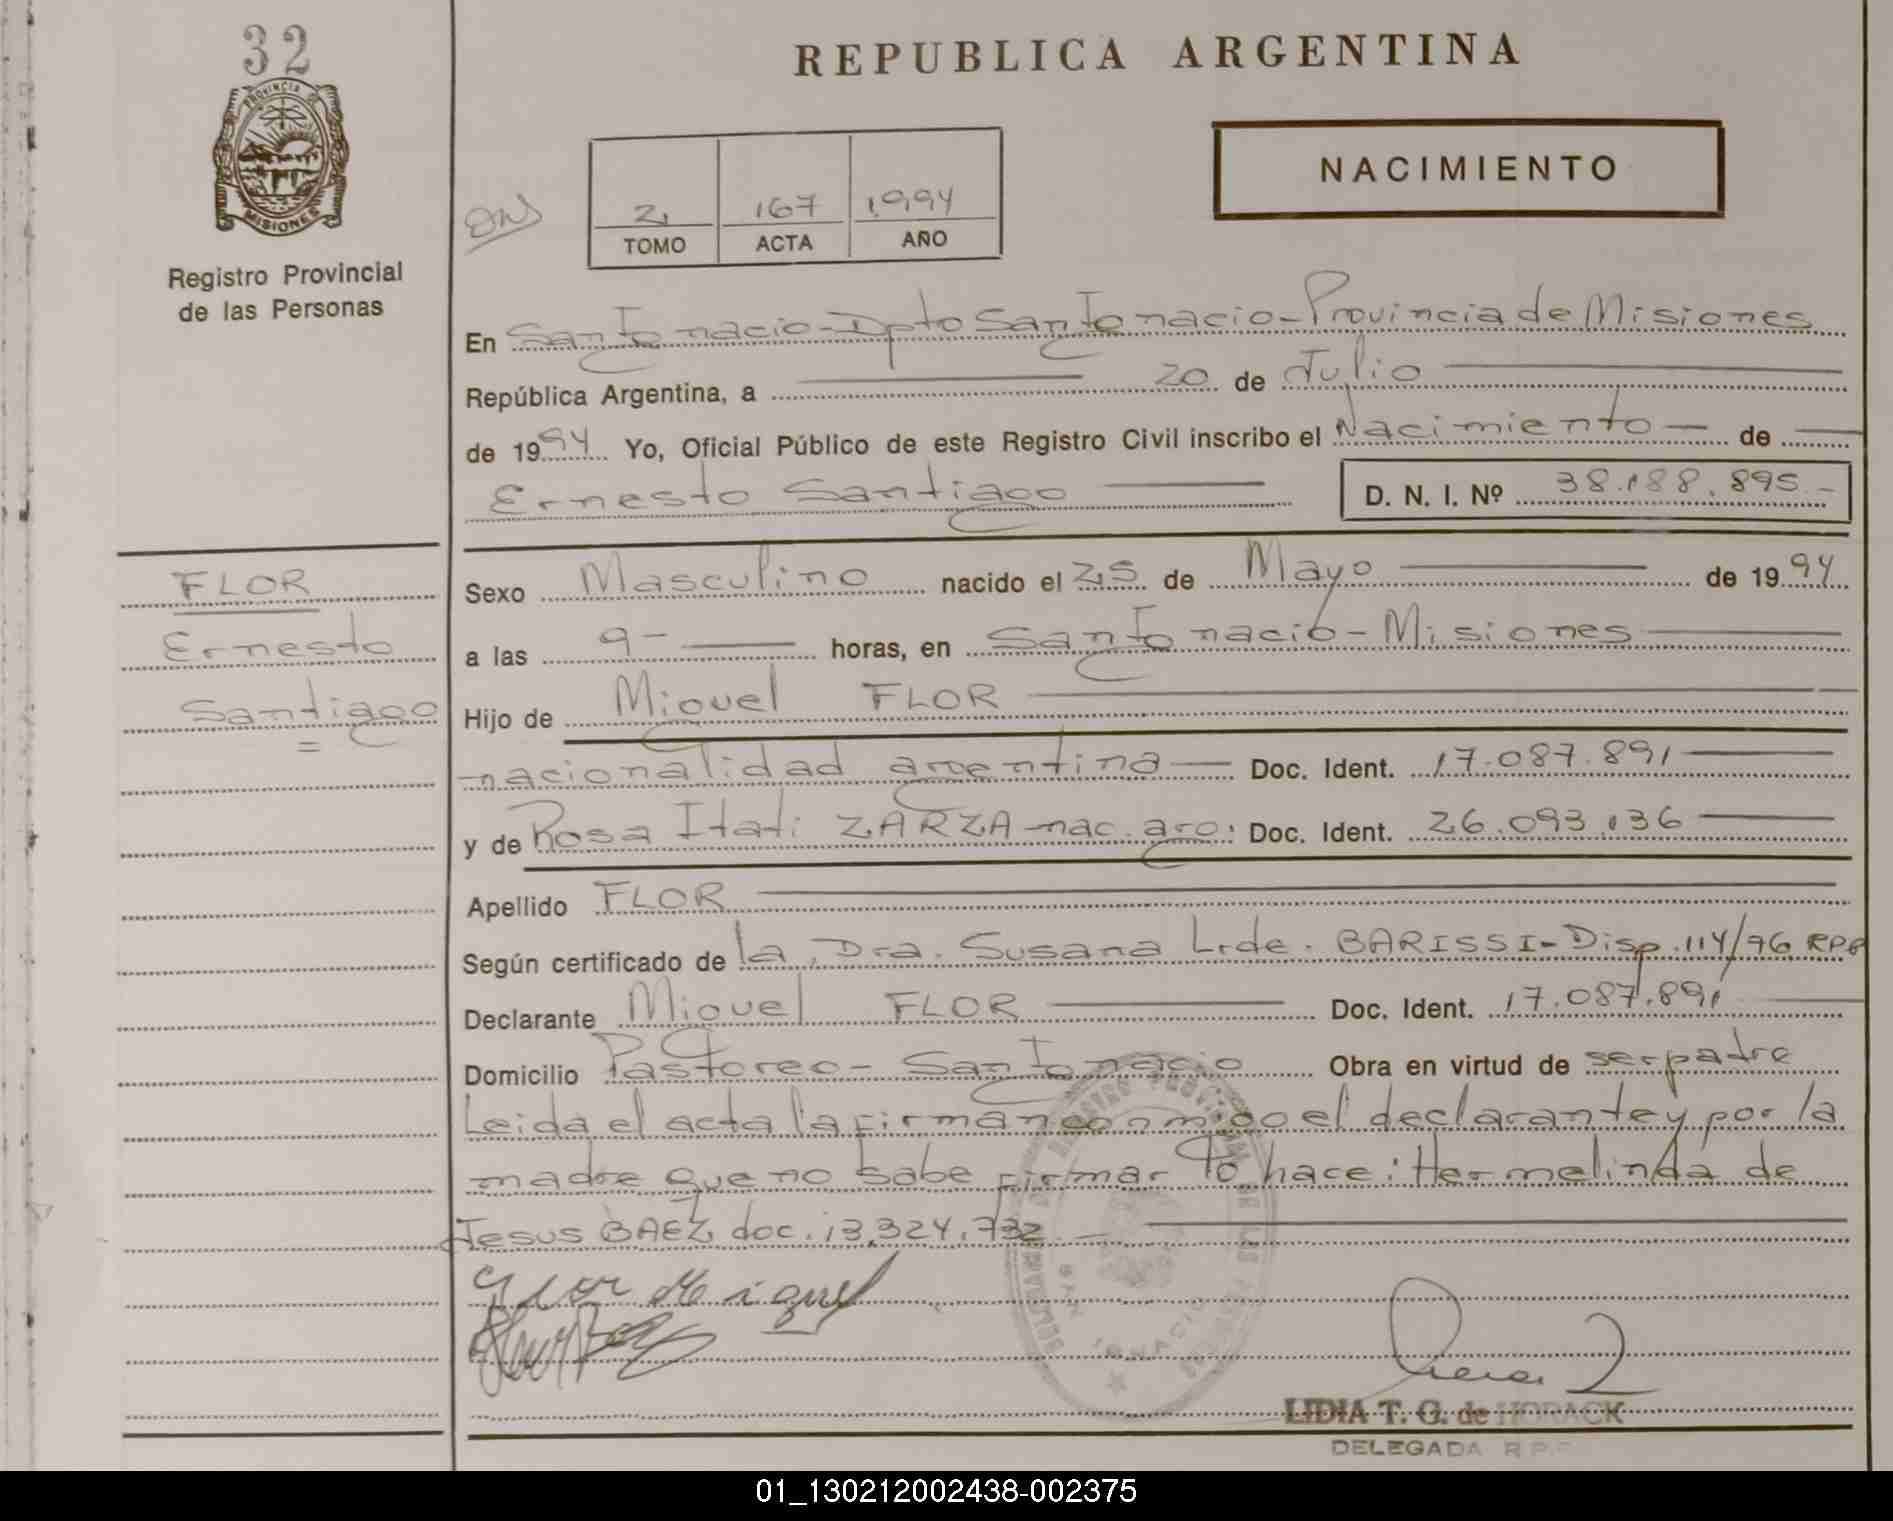 32
PROVINCIA DE
MISIONES
Registro Provincial
de las Personas
REPUBLICA ARGENTINA
NACIMIENTO
2 167 1994
TOMO ACTA AÑO
En San Ignacio - Dpto San Ignacio - Provincia de Misiones
República Argentina, a 20 de Julio
de 1994 Yo, Oficial Público de este Registro Civil inscribo el Nacimiento de
Ernesto Santiago D. N. I. Nº 38.188.895.-
FLOR
Ernesto
Santiago
Sexo Masculino nacido el 25 de Mayo de 1994
a las 9- horas, en San Ignacio - Misiones
Hijo de Miguel FLOR
nacionalidad argentina Doc. Ident. 17.087.891
y de Rosa Itati ZARZA - nac. arg: Doc. Ident. 26.093.136
Apellido FLOR
Según certificado de la Dra. Susana L. de BARISSI - Disp. 114/76 RPP
Declarante Miguel FLOR Doc. Ident. 17.087.891
Domicilio Pastoreo - San Ignacio Obra en virtud de ser padre
Leida el acta la firman conmigo el declarante y por la
madre que no sabe firmar lo hace: Hermelinda de
Jesus BAEZ doc. 13.324.732 -
Flor Miguel
SAN IGNACIO
LIDIA T. G. de HORACK
DELEGADA R.P.P.
01_130212002438-002375